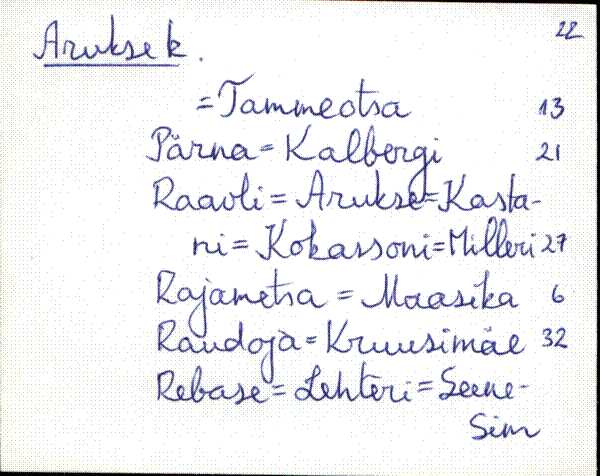 22
Arukse k.
=Tammeotsa 13
Pärna=Kalbergi 21
Raavli=Arukse=Kasta-
ni=Kokassoni=Milleri 27
Rajametsa=Maasika 6
Raudoja=Kruusimäe 32
Rebase=Lehteri=Seene-
Sim